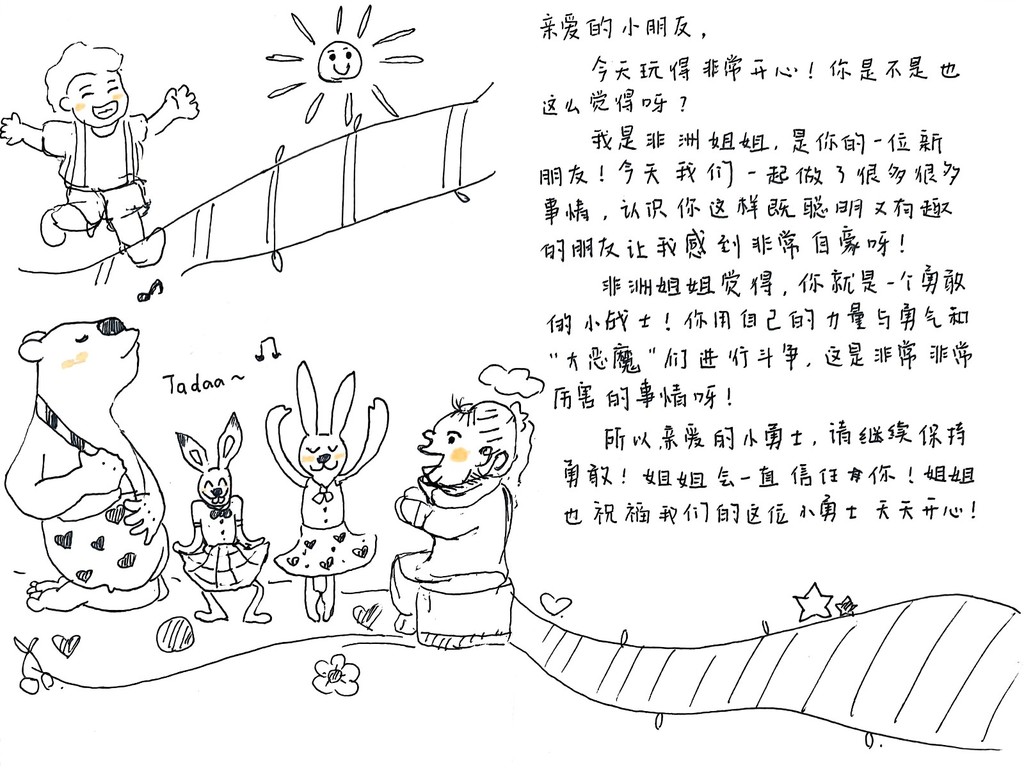 亲爱的小朋友，
今天玩得非常开心！你是不是也
这么觉得呀？
我是非洲姐姐，是你的一位新
朋友！今天我们一起做了很多很多
事情，认识你这样既聪明又有趣
的朋友让我感到非常自豪呀！
非洲姐姐觉得，你就是一个勇敢
的小战士！你用自己的力量与勇气和
“大恶魔”们进行斗争，这是非常非常
厉害的事情呀！
所以亲爱的小勇士，请继续保持
勇敢！姐姐会一直信任你！姐姐
也祝福我们的这位小勇士天天开心！
Tadaa~